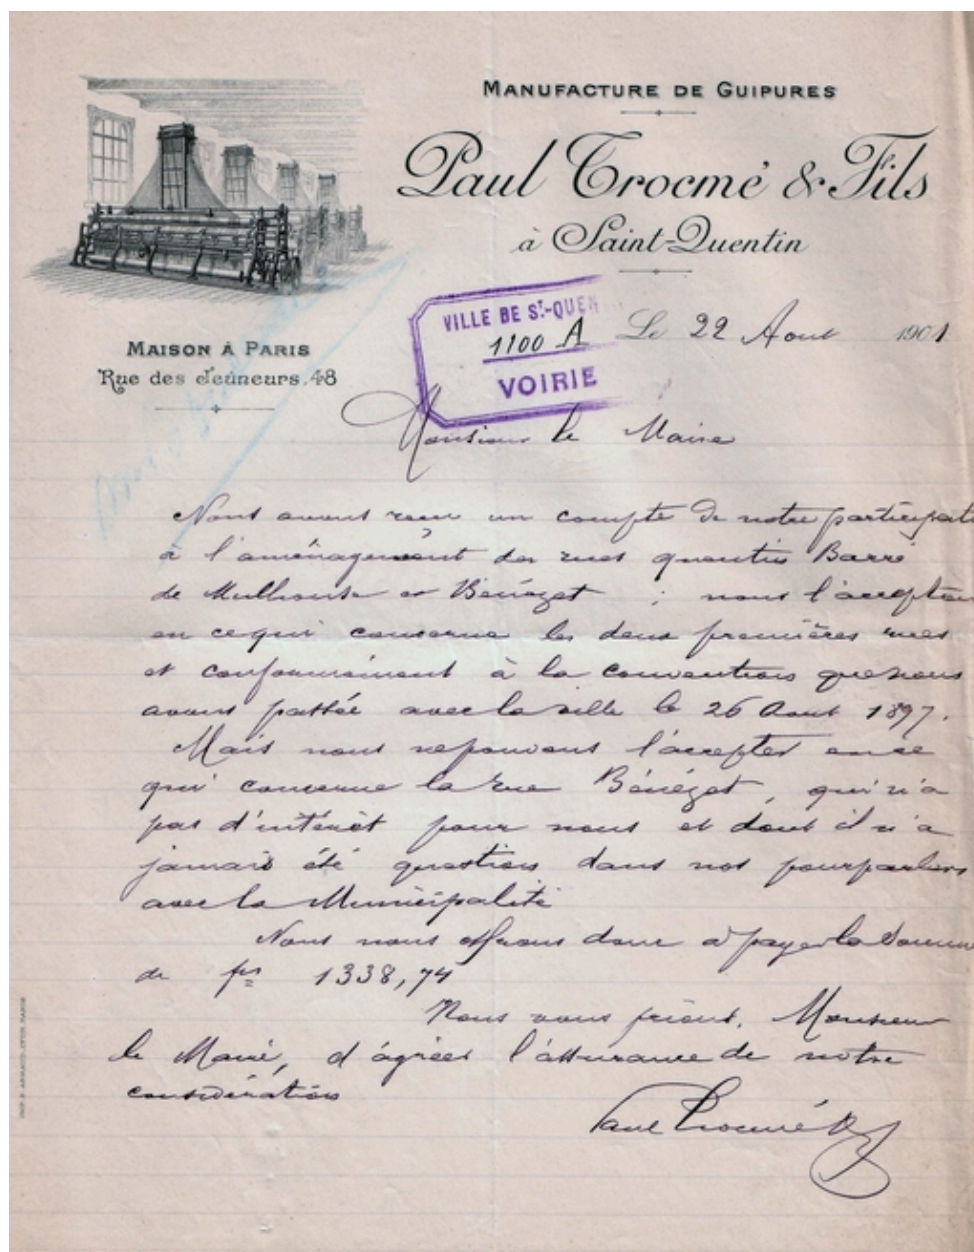 MANUFACTURE DE GUIPURES
Paul Trocmé & Fils
à Saint-Quentin
MAISON À PARIS
Rue des Jeûneurs. 48
VILLE DE ST-QUEN
1100 A
VOIRIE
Le 22 Aout 1901
Monsieur le Maire
Nous avons recu un compte de notre participat
à l'aménagement des rues quentin Barré
de Mulhouse et Bénézet ; nous l'accepton
en cequi concerne les deux premières rues
et conformément à la convention que nous
avons passée avec la ville le 26 Aout 1897.
Mais nous ne pouvons l'accepter en ce
qui concerne la rue Bénézet, qui n'a
pas d'intérêt pour nous et dont il n'a
jamais été question dans nos pourparlers
avec la Municipalité
Nous nous offrons donc à payer la somme
de frs 1338,74
Nous vous prions, Monsieur
le Maire, d'agréer l'assurance de notre
considération
Paul Trocmé &